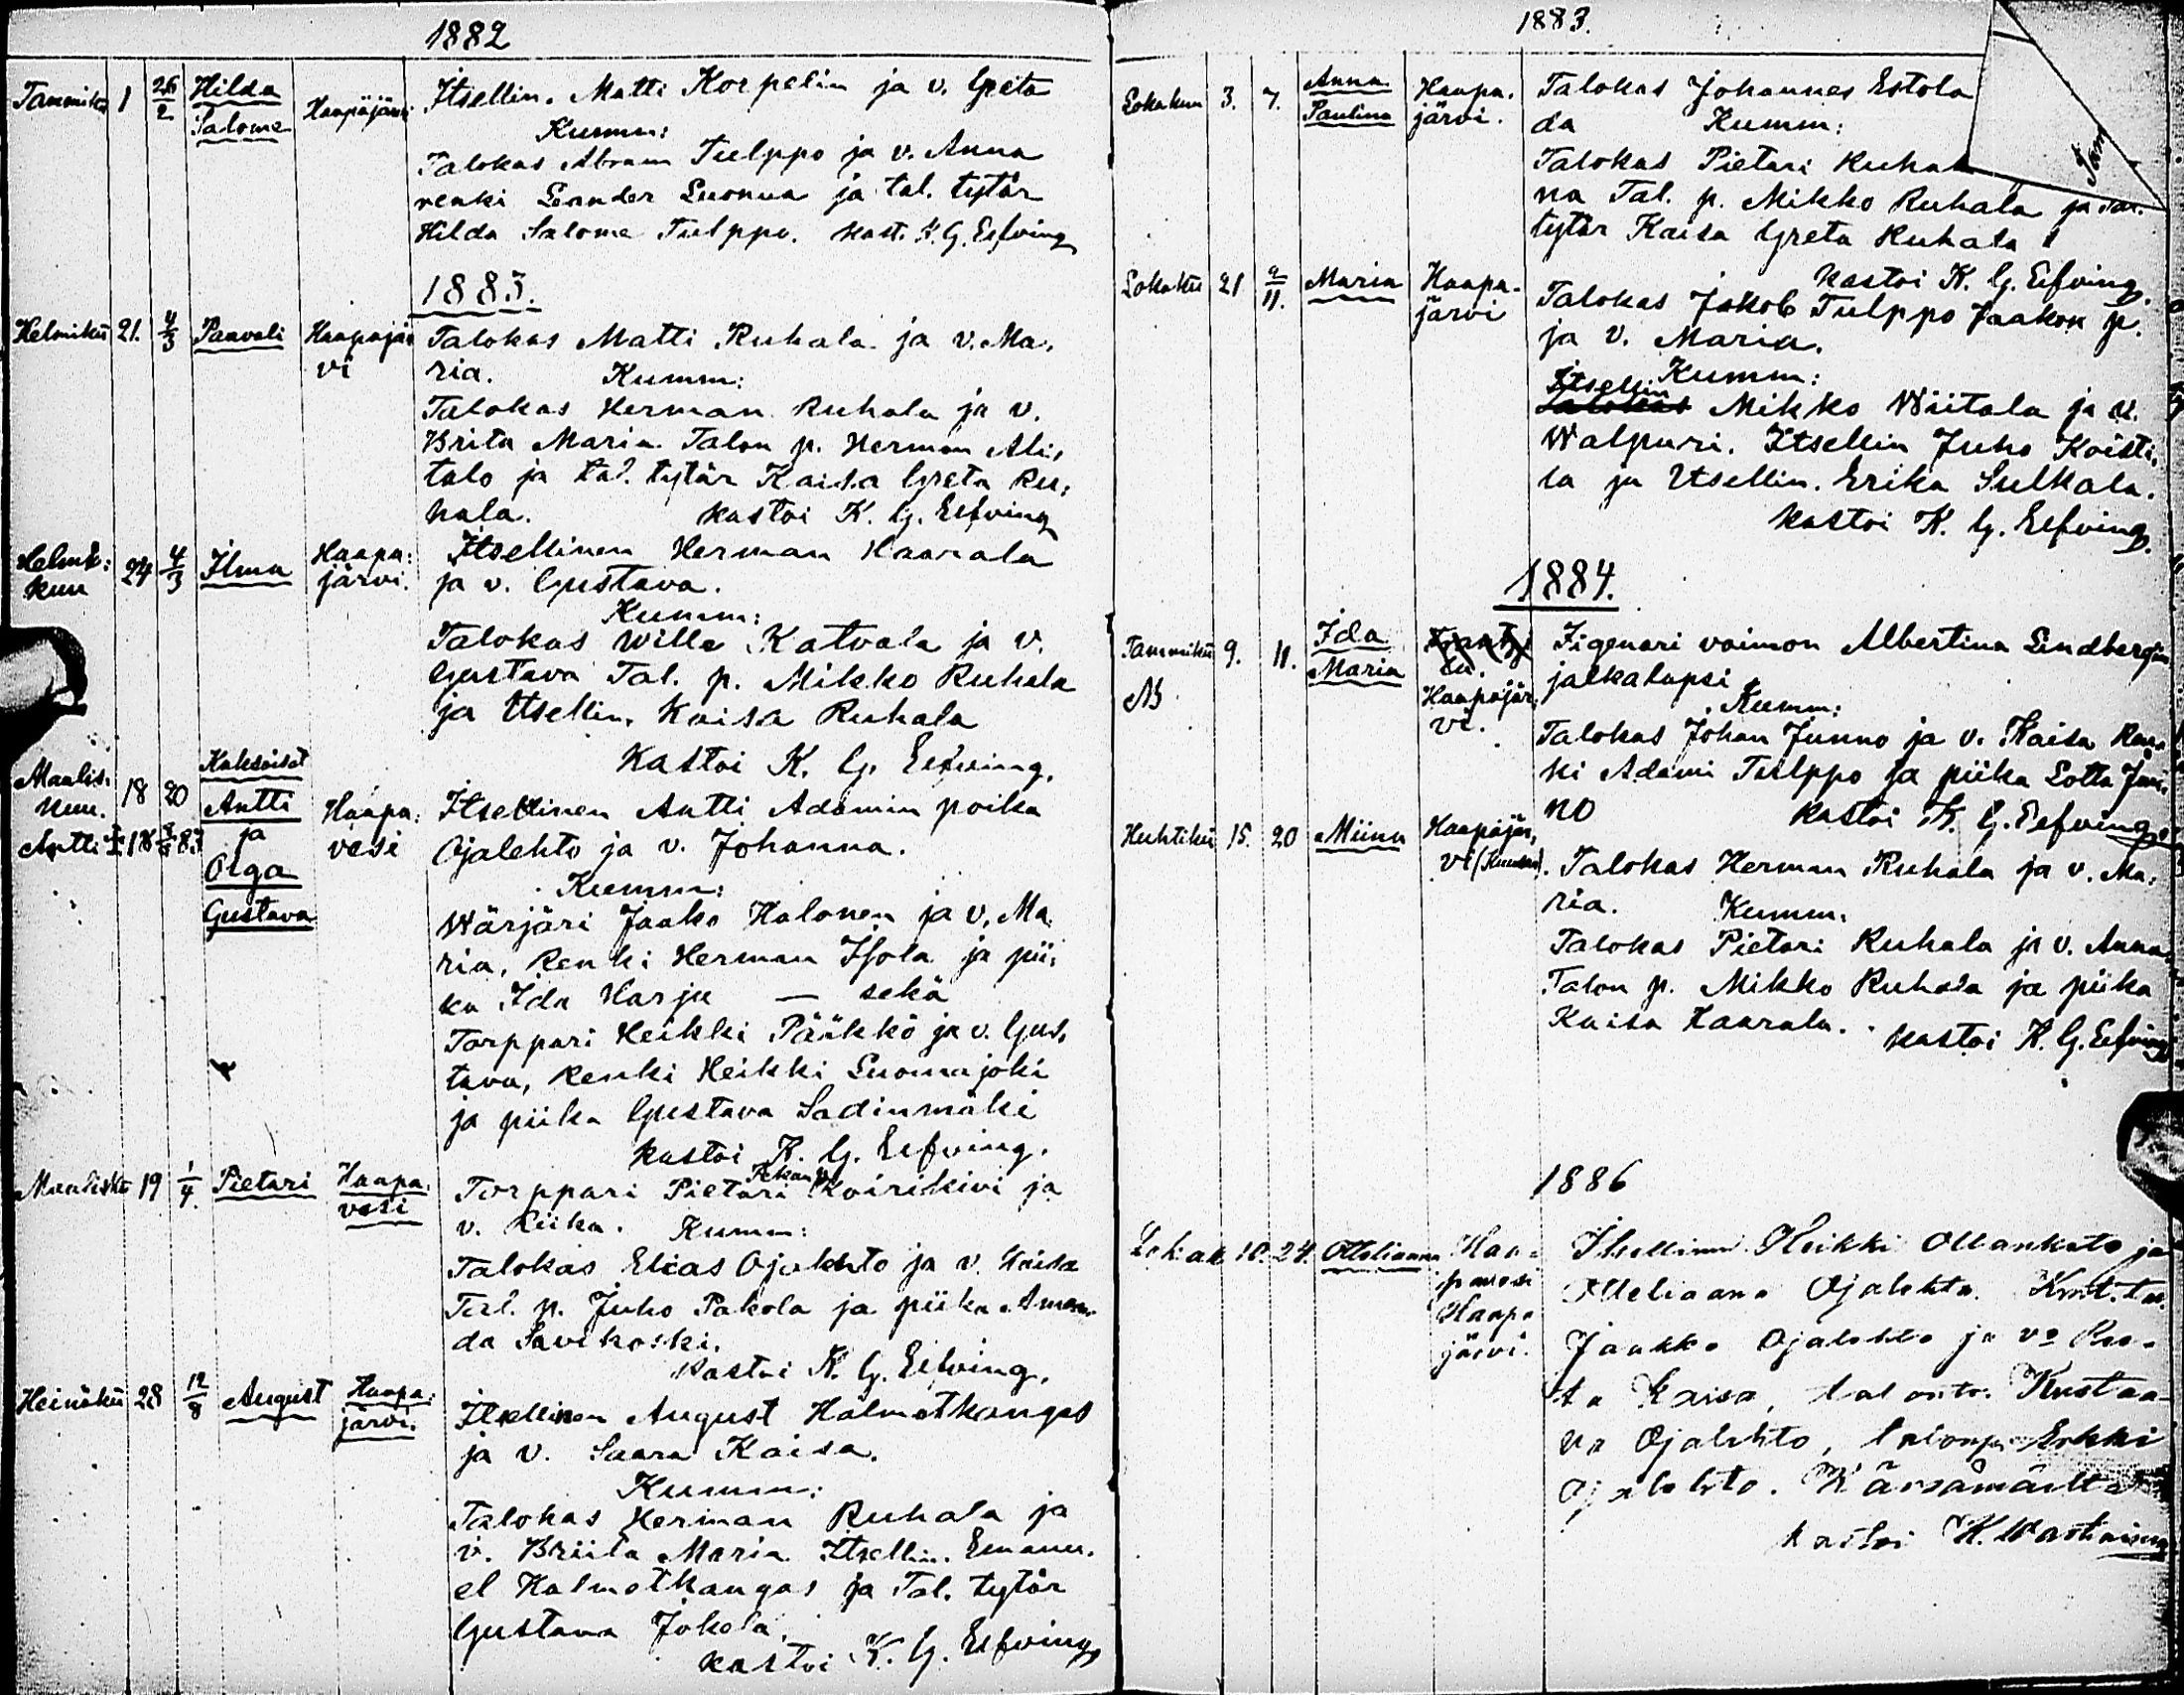 1882
Tammiku 1 26/2 Hilda Salome Haapajärvi
Itsellin. Matti Korpelin ja v. Greta
Kumm:
Talokas Abram Tulppo ja v. Anna
renki Leander Luonua ja tal. tytär
Hilda Salome Tulppo. Kast. K. G. Elfving
1883.
Helmiku 21. 4/3 Paavali Haapajärvi
Talokas Matti Ruhala ja v. Ma,
ria. Kumm:
Talokas Herman Ruhala ja v.
Brita Maria. Talon p. Herman Ali,
talo ja tal. tytär Kaisa Greta Ru,
hala. kastoi K. G. Elfving
Helmi:
kuu 24 4/3 Ilma Haapa:
järvi.
Itsellinen Herman Haarala
ja v. Gustava.
Kumm:
Talokas Wille Katvala ja v.
Gustava Tal. p. Mikko Ruhala
ja Itsellin. Kaisa Ruhala
Kastoi K. G. Elfving.
Maalis:
kuu. 18 20 Kaksoiset
Antti
ja
Olga
Gustava
Haapa:
vesi
Antti
Itsellinen Antti Adamin poika
Ojalehto ja v. Johanna.
Kumm:
Wärjäri Jaako Halonen ja v. Ma
ria, Renki Herman Isola ja pii,
ka Ida Harju — sekä
Torppari Heikki Pääkkö ja v. Gus,
tava, Renki Heikki Luomajoki
ja piika Gustava Sadinmäki
kastoi K. G. Elfving.
Maalisku 19 1/4. Pietari Haapa.
vesi
Torppari Pietari Koirikivi ja
v. Riika. Kumm:
Talokas Elias Ojalehto ja v. Kaisa
Tal. p. Juho Pakola ja piika Aman
da Savikoski.
Kastoi K. G. Elfving.
Heinäku 28 12/8 August Haapa:
järvi.
Itsellinen August Halmetkangas
ja v. Saara Kaisa.
Kumm:
Talokas Herman Ruhala ja
v. Briita Maria Itsellin. Emanu.
el Halmetkangas ja Tal. tytär
Gustava Jokela.
kastoi K. G. Elfving
1883.
Lokakuu 3. 7. Anna
Paulina Haapa.
järvi.
Talokas Johannes Estola
da Kumm:
Talokas Pietari Ruhal
na Tal. p. Mikko Ruhala ja
tytär Kaisa Greta Ruhala
kastoi K. G. Elfving.
Tam
Lokaku 21 2/11. Maria Haapa-
järvi
Talokas Jakob Tulppo Jaakon p.
ja v. Maria.
Kumm:
Itsellin
Talokas Mikko Wiitala ja v.
Walpuri. Itsellin Juho Koisti,
la ja Itsellin. Erika Sulkala.
kastoi K. G. Elfving.
1884.
Tammiku 9. 11. Ida
Maria
Haapajär,
vi.
Zigenari vaimon Albertina Lindbergin
jalkalapsi
Kumm:
Talokas Johan Junno ja v. Kaisa Ren,
ki Adami Tulppo ja piika Lotta Jun,
no kastoi K. G. Elfving.
Huhtiku 15. 20 Miina Haapajär,
vi
Talokas Herman Ruhala ja v. Ma,
ria. Kumm.
Talokas Pietari Ruhala ja v. Anna,
Talon p. Mikko Ruhala ja piika
Kaisa Haarala. kastoi K. G. Elfving
1886
Lokak 10. 24. Haa-
pavesi
Haapa
järvi.
Itsellinen Heikki Ollankato ja
Ojalehto.
Jaakko Ojalehto ja vo
Kaisa, Kustaa-
va Ojalehto, Erkki
Ojalehto. Kärsämäeltä
kastoi K.